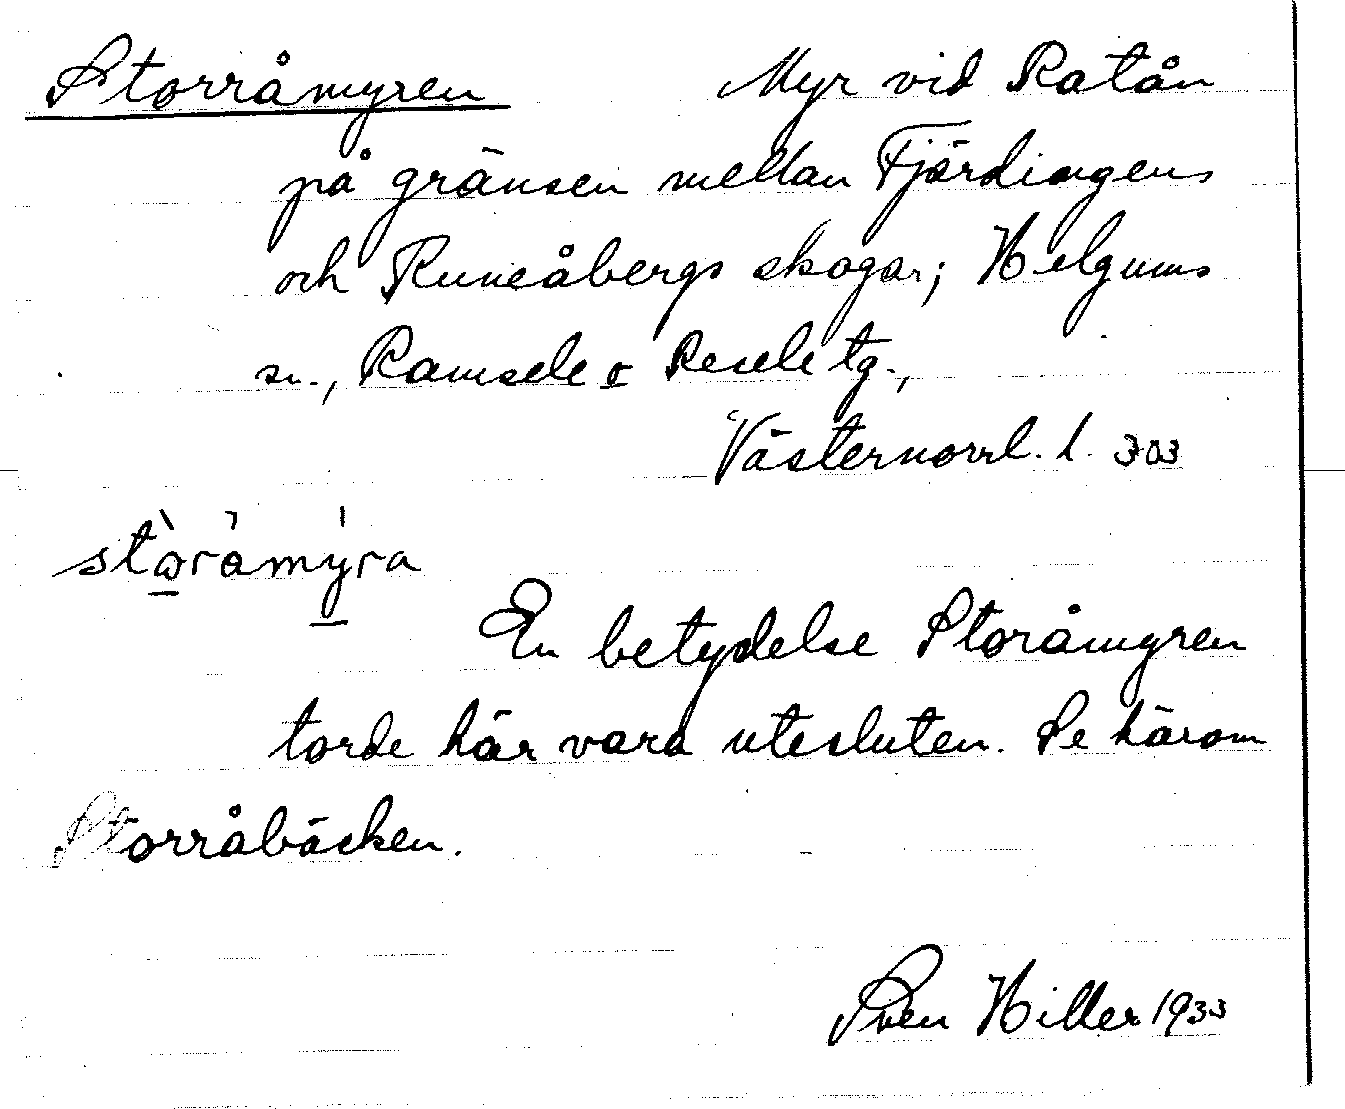 Storråmyren Myr vid Ratån
på gränsen mellan Fjärdingens
och Runeåbergs skogar; Helgums
sn., Ramsele o Resele tg.,
Västernorrl. l. 303
storåmyra
En betydelse Storåmyren
torde här vara utesluten. Se härom
Storråbäcken.
Sven Hiller 1933